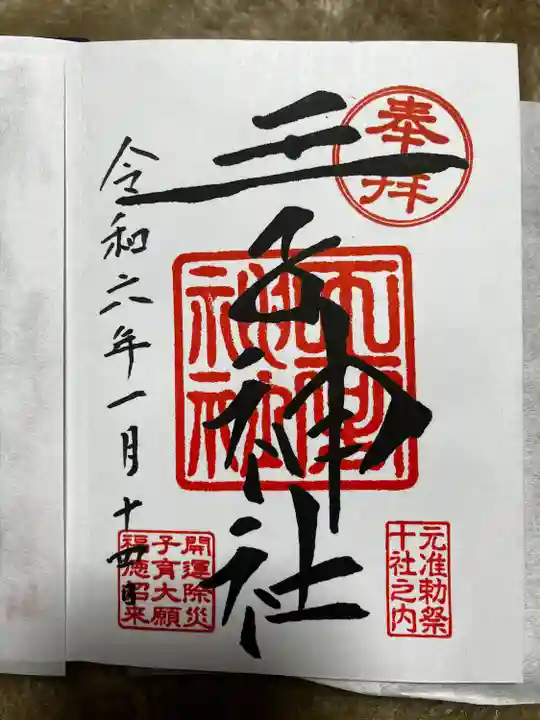 奉拝
王子神社
元准勅祭
十社之内
令和六年一月十四日
開運除災
子育大願
福徳招来